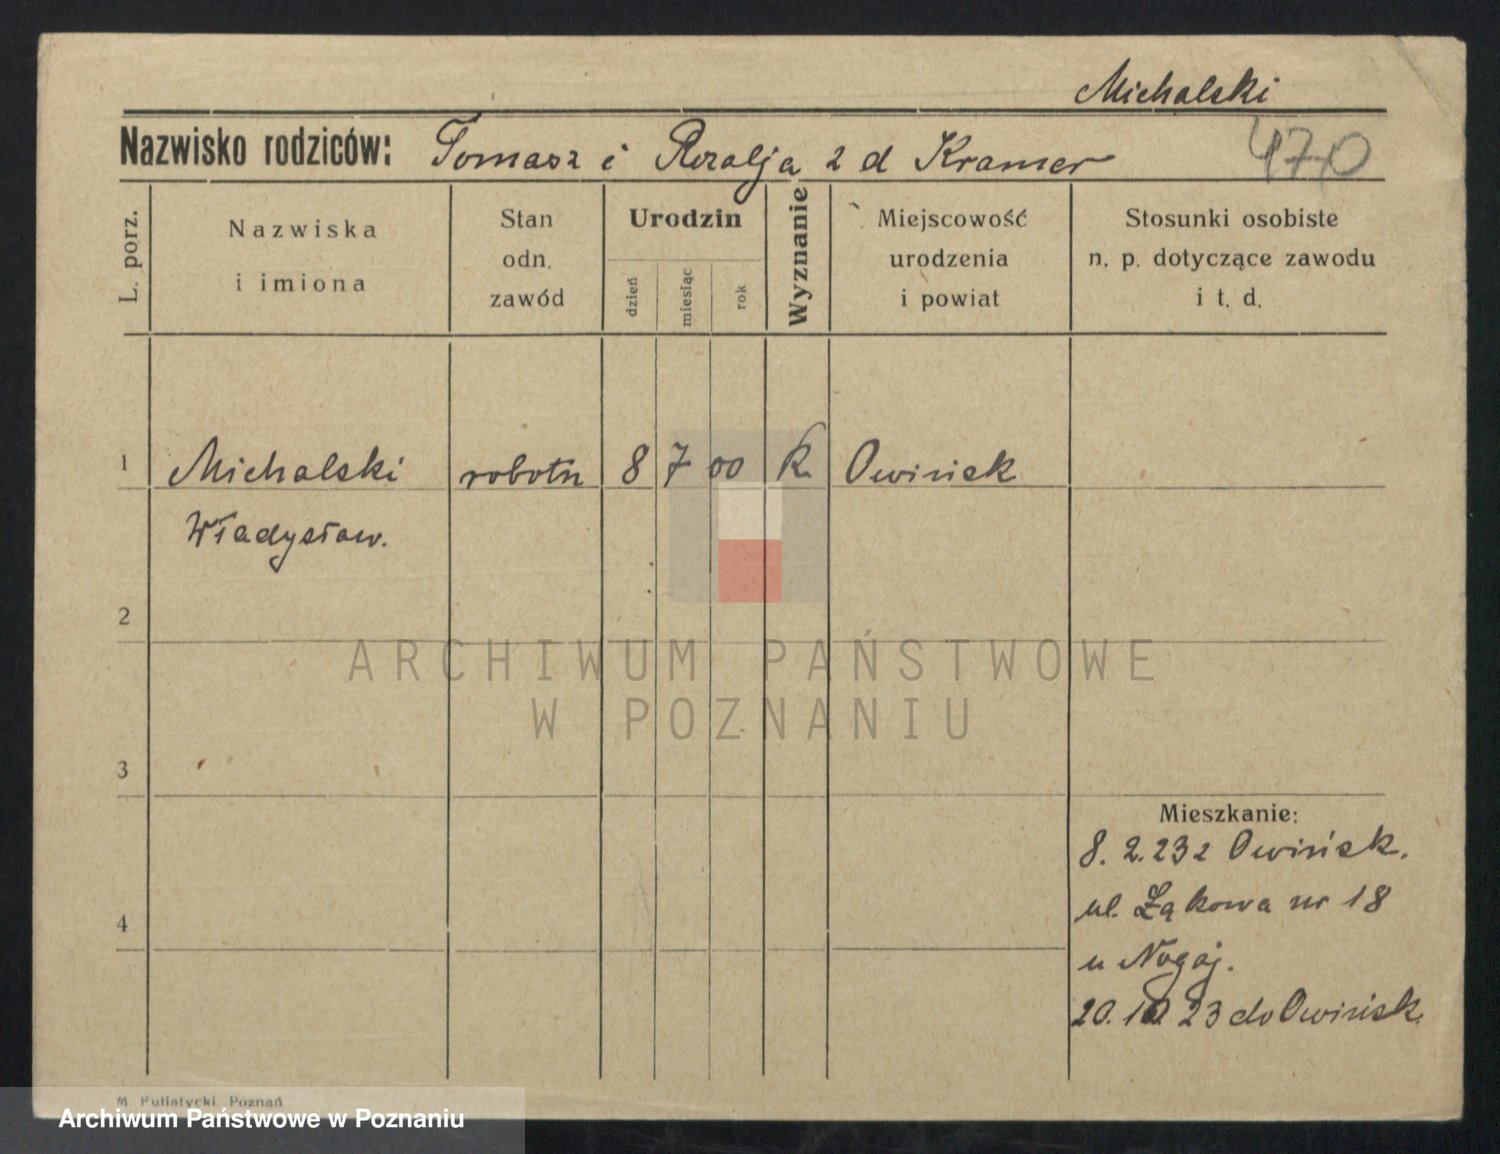 Michalski
Nazwisko rodziców: Tomasz i Rozalja z d Kramer
470
L. porz.
Nazwiska
i imiona
Stan
odn.
zawód
Urodzin
dzień
miesiąc
rok
Wyznanie
Miejscowość
urodzenia
i powiat
Stosunki osobiste
n. p. dotyczące zawodu
i t. d.
1 Michalski robotn 8 7 00 k. Owińsk
Władysław.
2
ARCHIWUM PAŃSTWOWE
W POZNANIU
3
Mieszkanie:
8. 2. 23 z Owińsk.
ul. Łąkowa nr 18
4
u Nogaj.
20. 10. 23 do Owińsk.
M. Putiatycki, Poznań
Archiwum Państwowe w Poznaniu